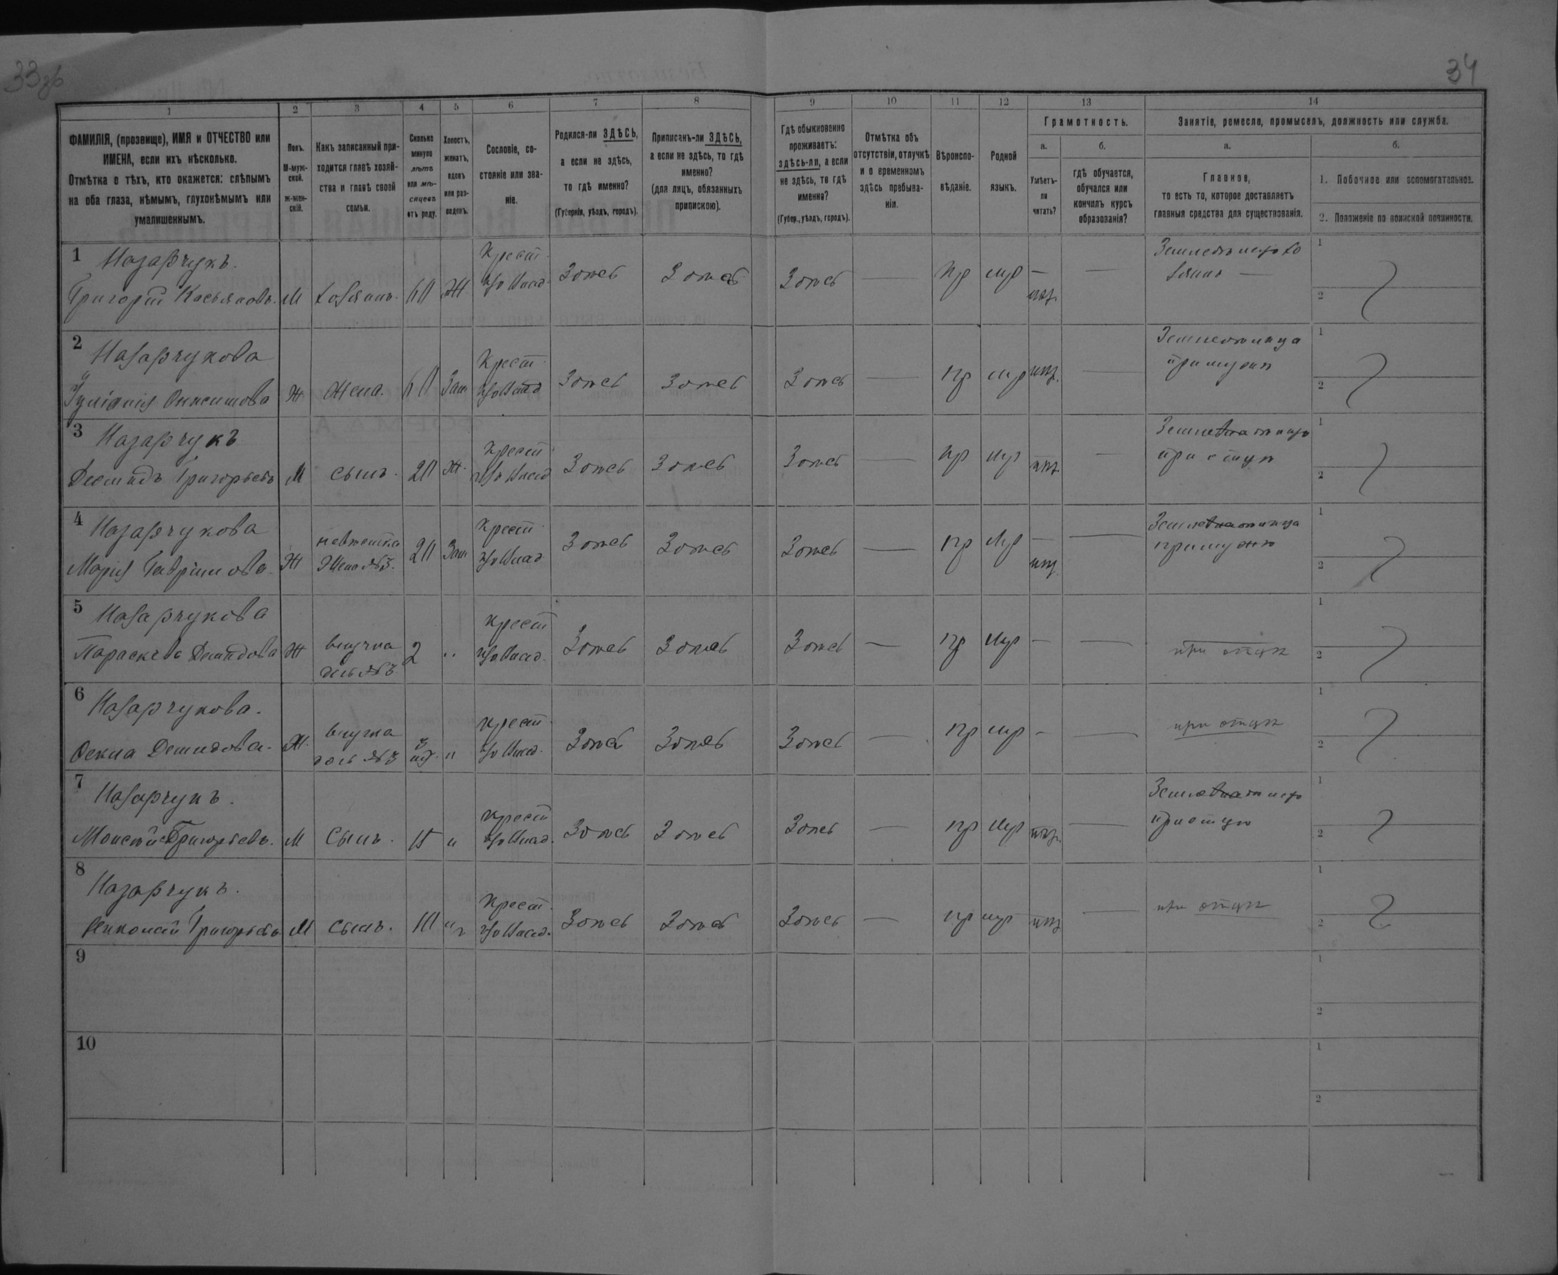 33об
34
1 2 3 4 5 6 7 8 9 10 11 12 13 14
ФАМИЛІЯ, (прозвище), ИМЯ и ОТЧЕСТВО или
ИМЕНА, если ихъ нѣсколько.
Отмѣтка о тѣхъ, кто окажется: слѣпымъ
на оба глаза, нѣмымъ, глухонѣмымъ или
умалишеннымъ.
Полъ.
М-муж-
ской.
Ж-жен-
скій.
Какъ записанный при-
ходится главѣ хозяй-
ства и главѣ своей
семьи.
Сколько
минуло
лѣтъ
или мѣ-
сяцевъ
отъ роду.
Холостъ,
женатъ,
вдовъ
или раз-
веденъ.
Сословіе, со-
стояніе или зва-
ніе.
Родился-ли ЗДѢСЬ,
а если не здѣсь,
то гдѣ именно?
(Губернія, уѣздъ, городъ).
Приписанъ-ли ЗДѢСЬ,
а если не здѣсь, то гдѣ
именно?
(для лицъ, обязанныхъ
припискою).
Гдѣ обыкновенно
проживаетъ:
здѣсь-ли, а если
не здѣсь, то гдѣ
именно?
(Губер., уѣздъ, городъ).
Отмѣтка объ
отсутствіи, отлучкѣ
и о временномъ
здѣсь пребыва-
ніи.
Вѣроиспо-
вѣданіе.
Родной
языкъ.
Грамотность.
а.
Умѣетъ-
ли
читать?
б.
гдѣ обучается,
обучался или
кончилъ курсъ
образованія?
Занятіе, ремесло, промыселъ, должность или служба.
а.
Главное,
то есть то, которое доставляетъ
главныя средства для существованія.
б.
1. Побочное или вспомогательное.
2. Положеніе по воинской повинности.
1 Назарчукъ.
Григорій Касьяновъ. М хозяинъ. 60 Ж Крест. Здѣсь Здѣсь Здѣсь — пр мр — —
1
2
2 Назарчукова
Ж жена. 60 Зам Крест. Здѣсь Здѣсь Здѣсь — пр мр —
1
2
3 Назарчукъ
Демидъ Григорьевъ М сынъ. 20 Ж. Крест. Здѣсь Здѣсь Здѣсь — пр мр — при отцѣ
1
2
4 Назарчукова
Марія Гаврилова. Ж невѣстка 20 Зам Крест. Здѣсь Здѣсь Здѣсь — пр мр — — при мужѣ
1
2
5 Назарчукова
Параскева Демидова Ж внучка 2 „ Крест Здѣсь Здѣсь Здѣсь — пр мр — — при отцѣ
1
2
6 Назарчукова.
Фекла Демидова. Ж. внучка „ Крест. Здѣсь Здѣсь Здѣсь — пр мр - — при отцѣ
1
2
7 Назарчукъ.
Моисей Григорьевъ. М сынъ. 15 „ Крест Здѣсь Здѣсь Здѣсь — пр мр — при отцѣ
1
2
8 Назарчукъ.
Григорьевъ М сынъ. 10 „ Крест. Здѣсь Здѣсь Здѣсь — пр мр — при отцѣ
1
2
9
1
2
10
1
2